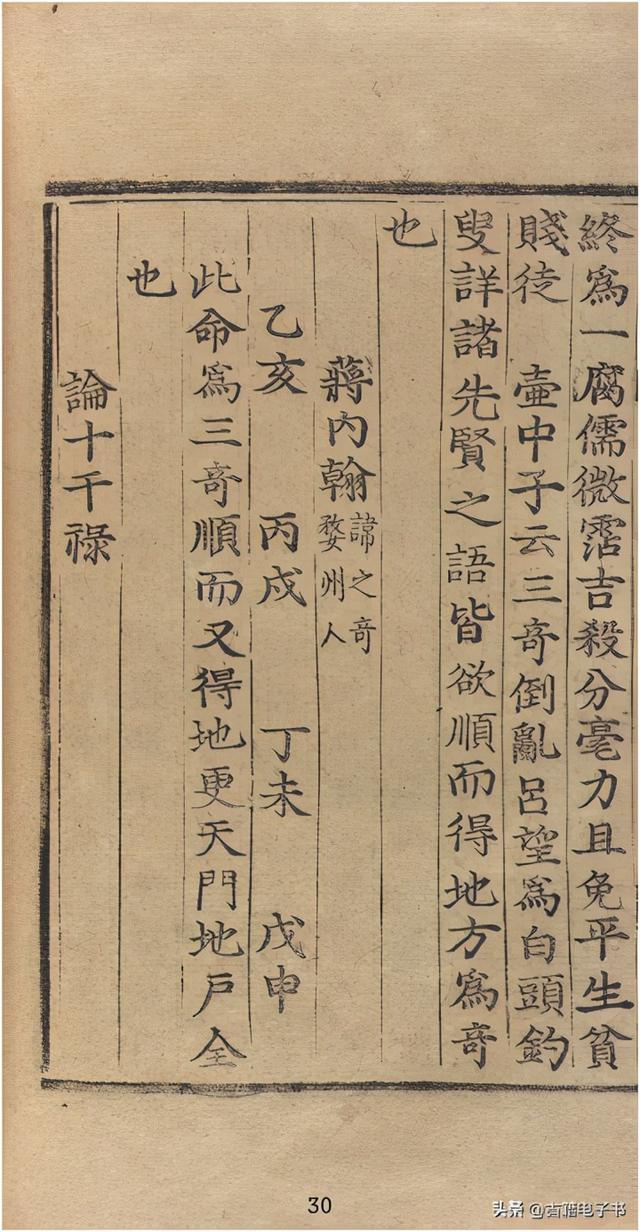 終爲一腐儒微霑吉殺分毫力且免平生貧
賤徒　壷中子云三竒倒亂呂望爲白頭釣
叟詳諸先賢之語皆欲順而得地方爲竒
也
蔣内翰諱之竒婺州人
乙亥　丙戍　丁未　戊申
此命爲三竒順而又得地更天門地戶全
也
論十干祿
30
头条 @古籍电子书